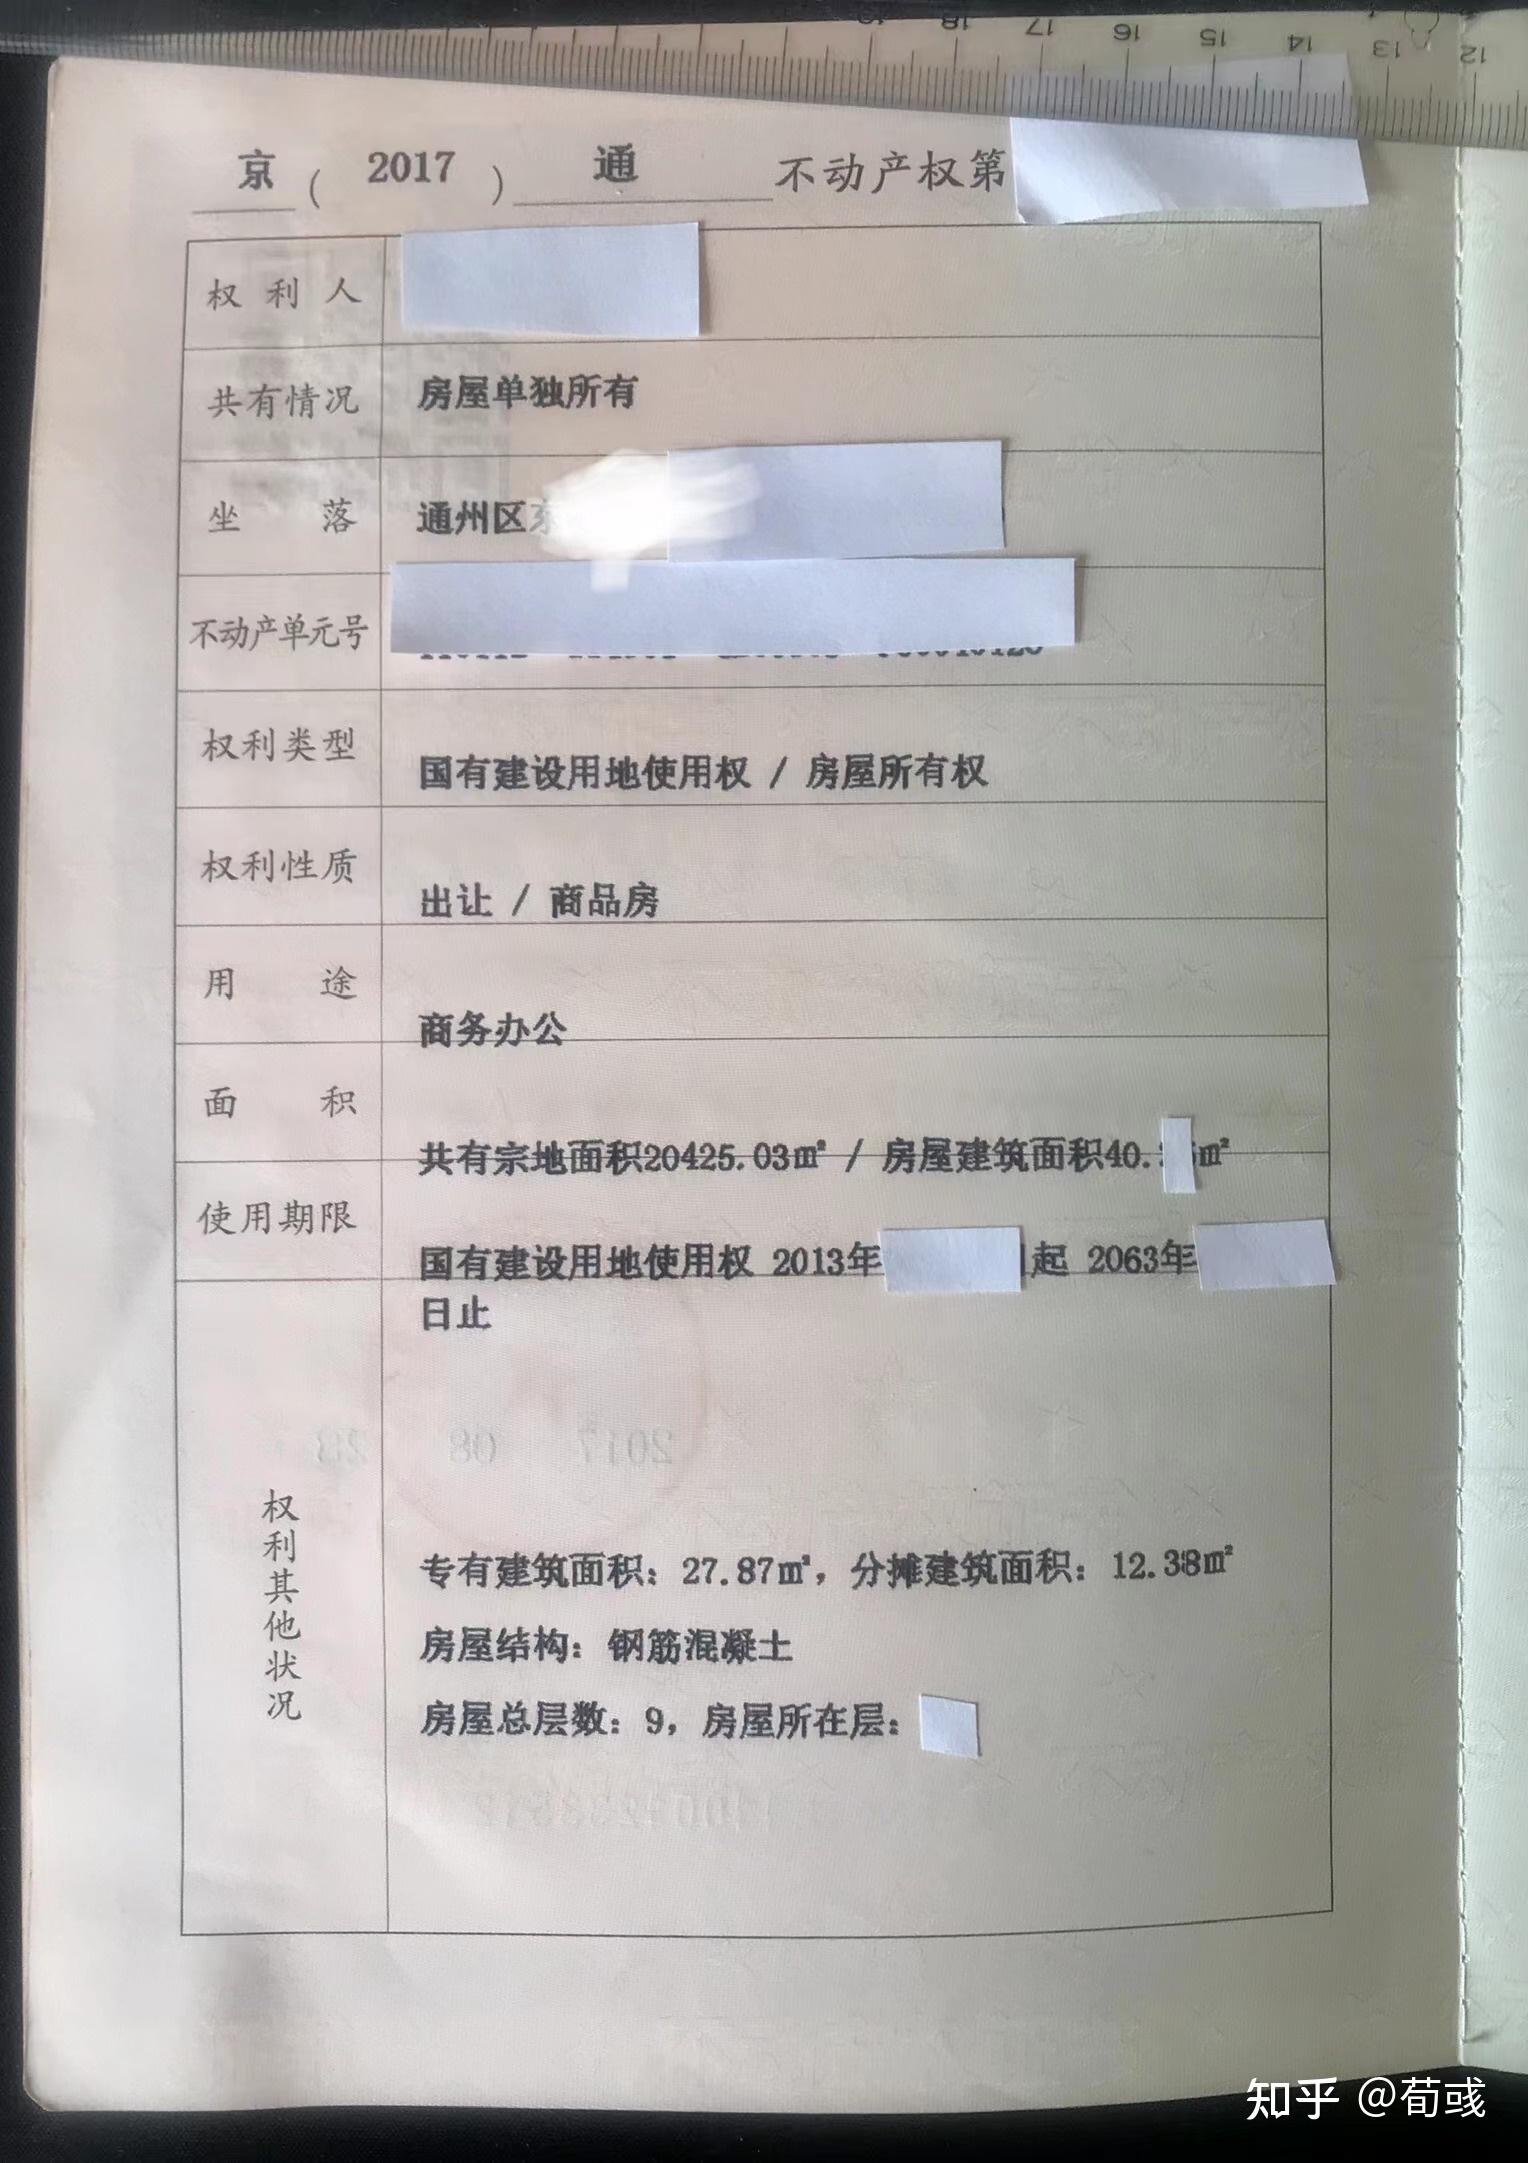 19 18 17 16 15 14 13 12
京 ( 2017 ) 通 不动产权第
权利人
共有情况 房屋单独所有
坐落 通州区东
不动产单元号
权利类型 国有建设用地使用权 / 房屋所有权
权利性质 出让 / 商品房
用途 商务办公
面积 共有宗地面积20425.03㎡ / 房屋建筑面积40. ㎡
使用期限 国有建设用地使用权 2013年 起 2063年
日止
2017 08 23
权利其他状况
专有建筑面积：27.87㎡，分摊建筑面积：12.38㎡
房屋结构：钢筋混凝土
房屋总层数：9，房屋所在层：
知乎 @荀彧